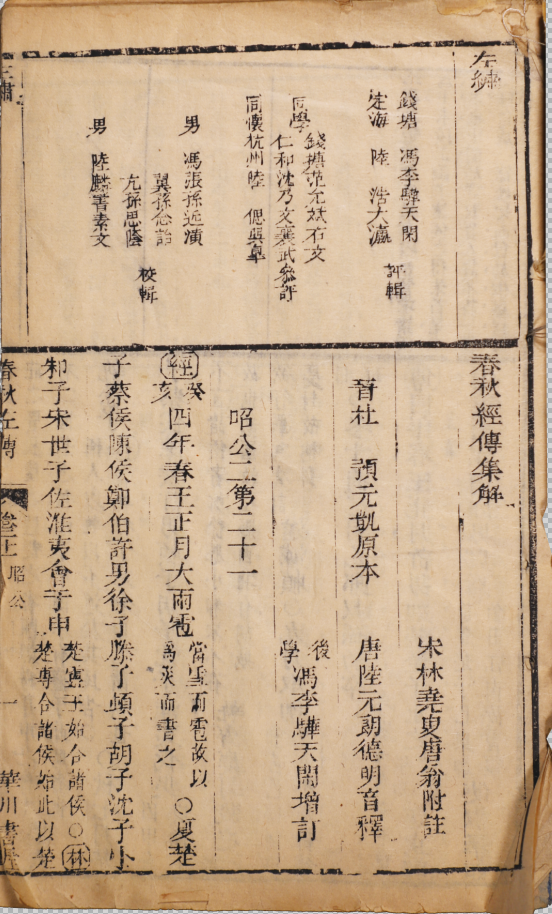 左繡
錢塘 馮李驊天閑
定海 陸 浩大瀛
評輯
錢塘范允斌右文
同學
仁和沈乃文襄武參評
同懷杭州陸 偲與皐
男 馮張孫近潢
翼孫念詒
亢孫思蔭
男 陸麟書素文
校輯
春秋經傳集解
宋林堯叟唐翁附註
晉杜 預元凱原本
唐陸元朗德明音釋
後學
馮李驊天閑增訂
昭公二第二十一
經 癸亥 四年春王正月大雨雹 當雪而雹故以為災而書之 ○夏楚
子蔡侯陳侯鄭伯許男徐子滕子頓子胡子沈子小
邾子宋世子佐淮夷會于申 楚靈王始合諸侯○林楚專合諸侯始此以楚
春秋左傳 昭公 一 華川書屋